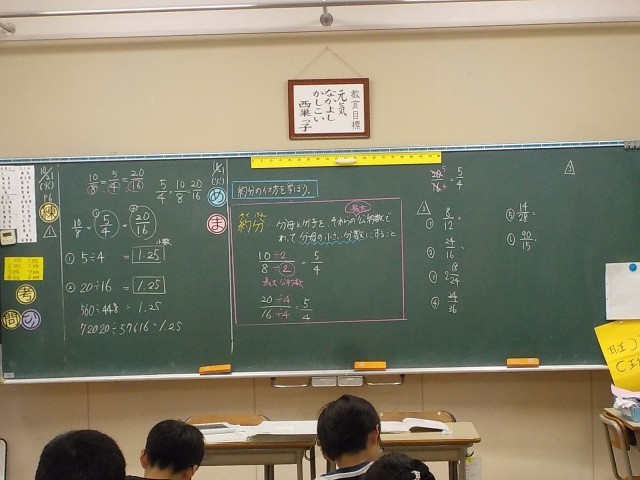 教育目標
元気
なかよし
かしこい
西巣っ子
10/8 = 5/4 = 20/16
5/4 = 10/8 = 20/16
10/8 = 5/4 = 20/16
① 5÷4 = 1.25
② 20÷16 = 1.25
560÷448 = 1.25
72020÷57616=1.25
練
考
問
め
約分の仕方を学ぼう。
ま
最大
約分 分母と分子を、それらの公約数で
わって分母の小さい分数にすること
10÷2/8÷2 = 5/4
最大公約数
20÷4/16÷4 = 5/4
= 5/4
① 8/12 =
② 24/16 =
③ 2 18/24 =
④ 24/36
⑤ 14/28 =
90/15 =